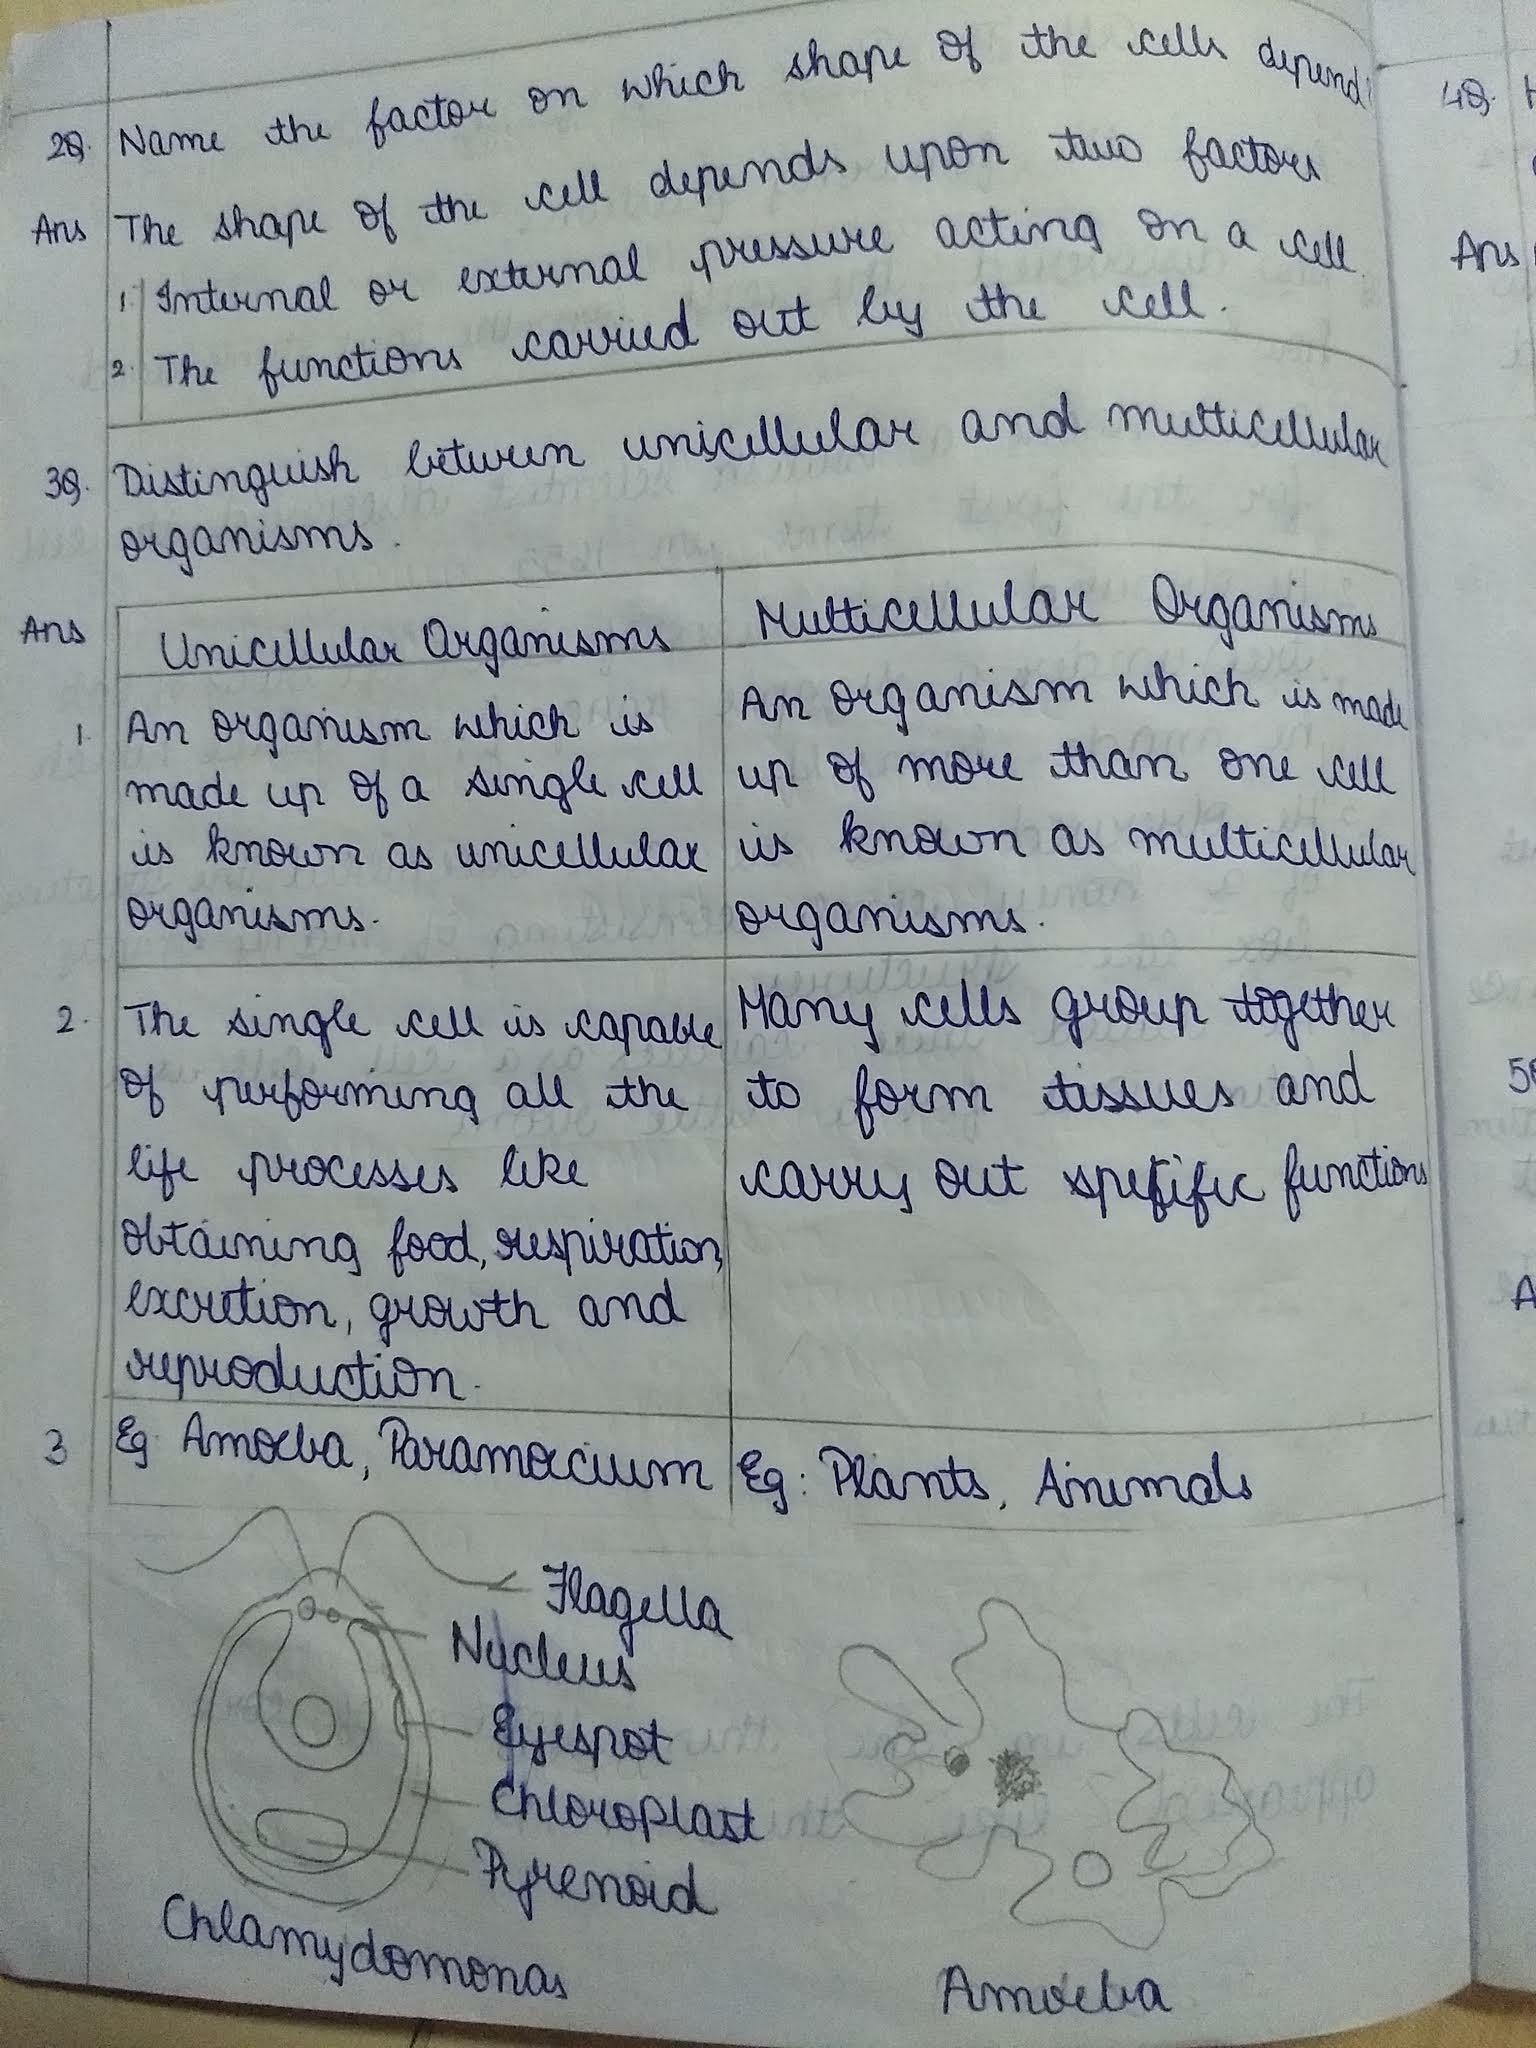 2Q. Name the factor on which shape of the cells depend
Ans The shape of the cell depends upon two factors
1. Internal or external pressure acting on a cell.
2. The functions carried out by the cell.
3Q. Distinguish between unicellular and multicellular
organisms.
Ans
Unicellular Organisms
1. An organism which is
made up of a single cell
is known as unicellular
organisms.
Multicellular Organisms
An organism which is made
up of more than one cell
is known as multicellular
organisms.
2. The single cell is capable
of performing all the
life processes like
obtaining food, respiration,
excretion, growth and
reproduction.
Many cells group together
to form tissues and
carry out specific functions
3 Eg. Amoeba, Paramoecium
Eg: Plants, Animals
Flagella
Nucleus
Eyespot
Chloroplast
Pyrenoid
Chlamydomonas
Amoeba
4Q.
Ans